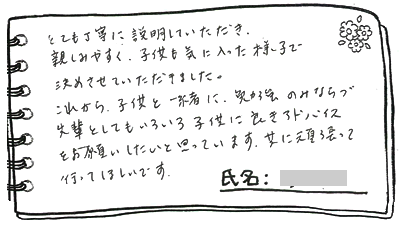 とても丁寧に説明していただき、
親しみやすく、子供も気に入った様子で
決めさせていただきました。
これから、子供と一緒に、勉強のみならず
先輩としてもいろいろ子供に良きアドバイス
をお願いしたいと思っています。共に頑張って
行ってほしいです。
氏名: